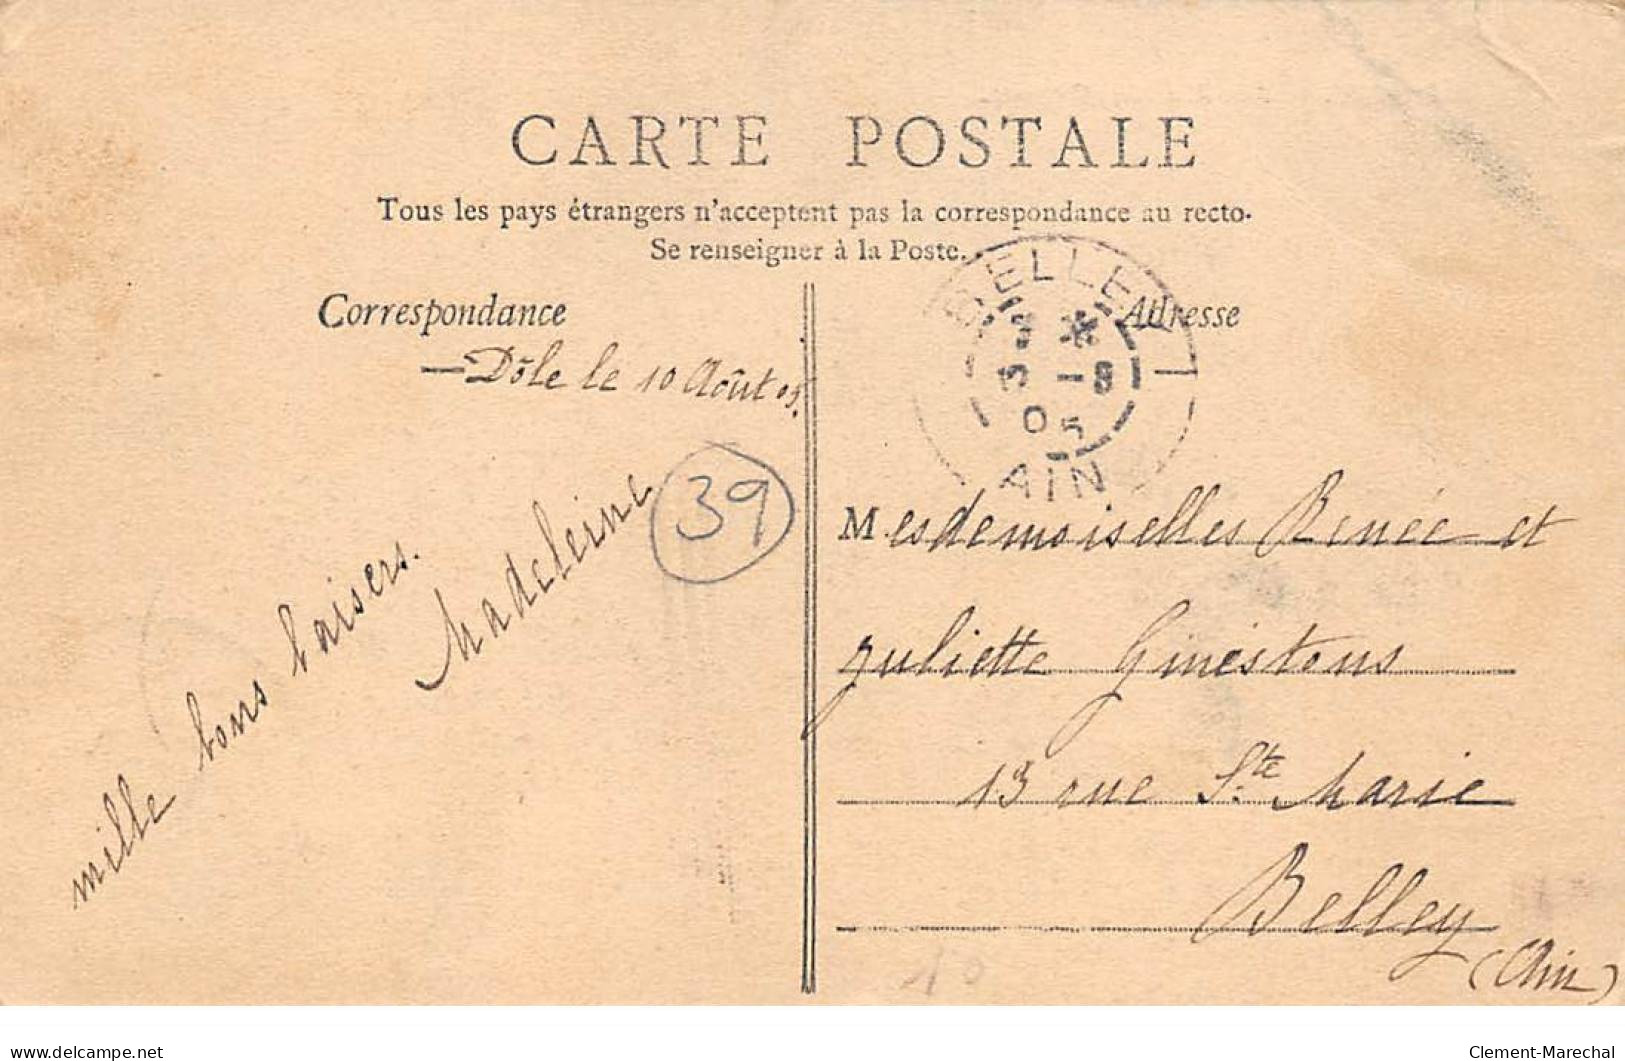 CARTE POSTALE
Tous les pays étrangers n'acceptent pas la correspondance au recto.
Se renseigner à la Poste.
Correspondance
Adresse
BELLEY
05
AIN
— Dôle le 10 Août 05.
39
mille bons baisers.
Madeleine
Mesdemoiselles Renée et
Juliette Ginestous
13 rue Ste Marie
Belley
(Ain)
10
delcampe.net
Clement-Marechal